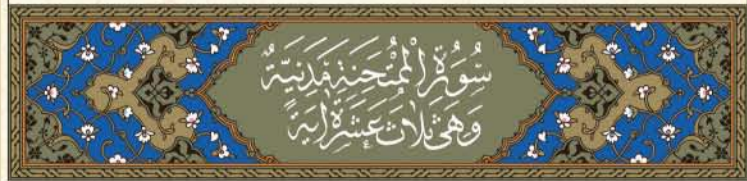 سُورَةُ الْمُمْتَحِنَةِ مَدَنِيَّةٌ
وَهِيَ ثَلَاثَ عَشَرَةَ اٰيَةً